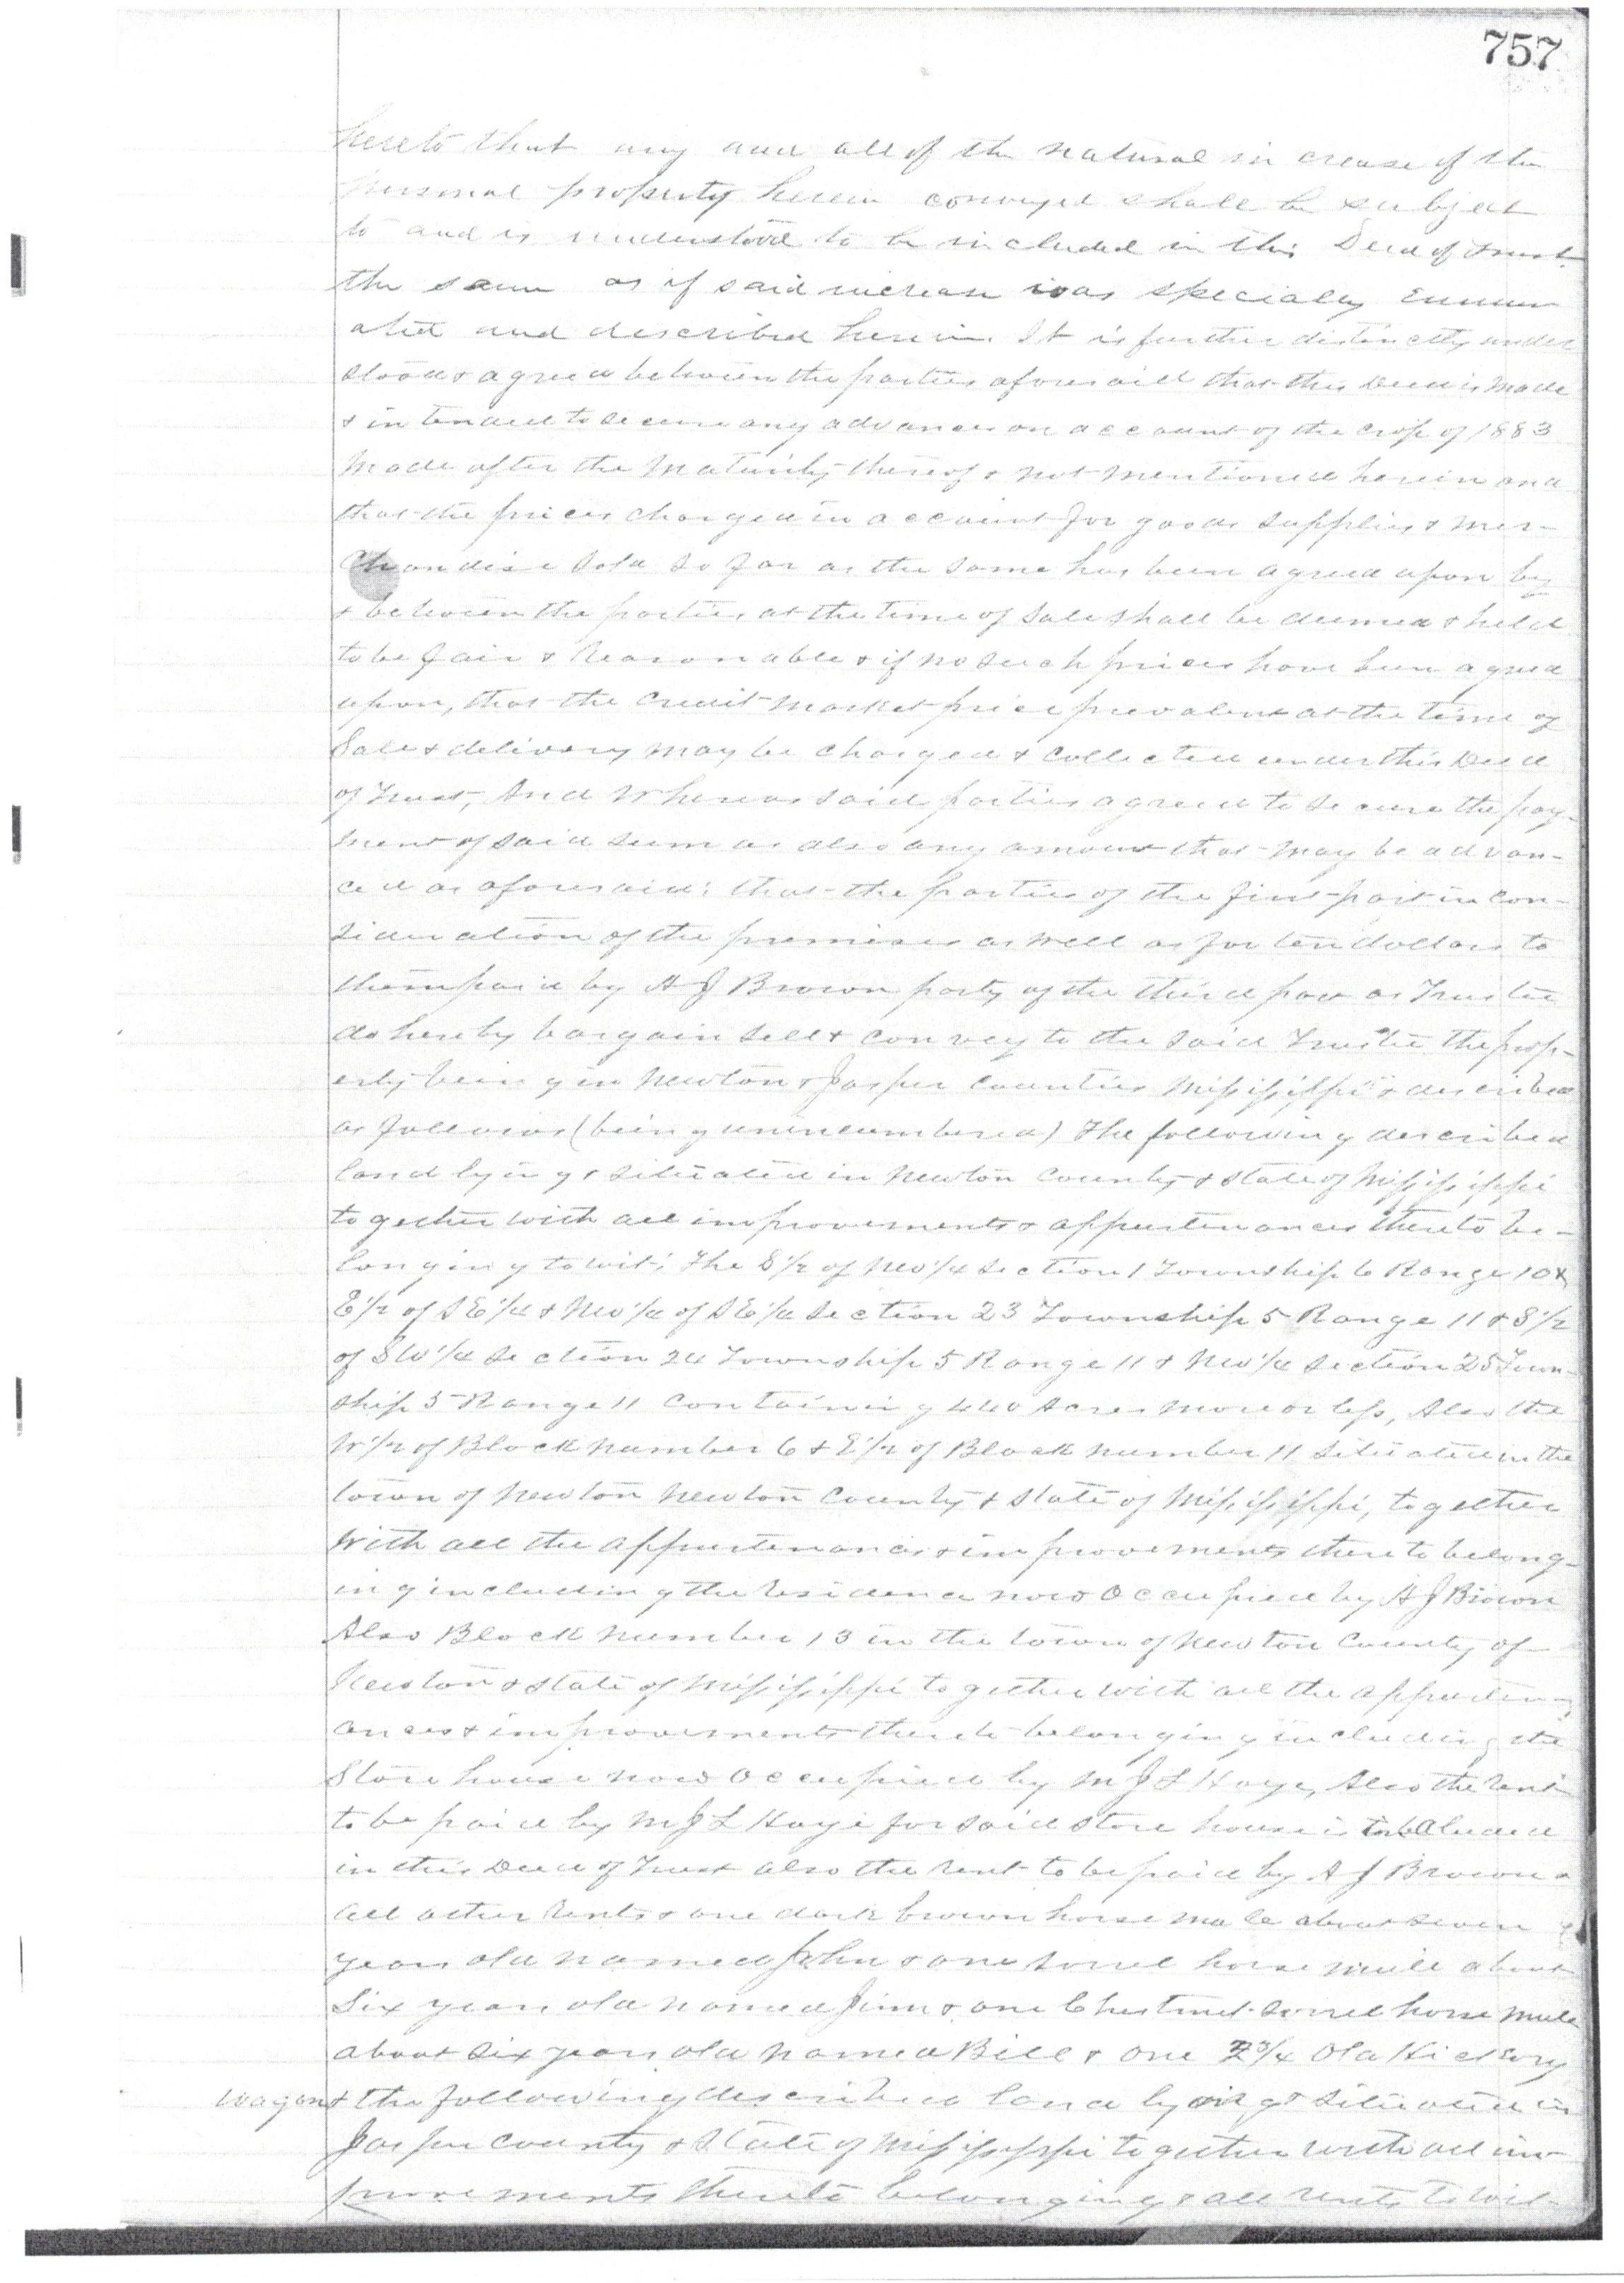 757
hereto that any and all of the natural in crease of the
personal property herein conveyed shall be subject
to and is understood to be included in this Deed of trust
the same as if said increase was specialy enumer
ated and described herein. It is further distinctly under
stood & agreed between the parties aforesaid that this Deed is made
& intended to secure any advances on account of the crop of 1883
made after the maturity thereof & not mentioned herein and
that the prices charged in account for goods supplies & mer-
chandise sold so far as the same has been agreed upon by
& between the parties, at the time of sale shall be deemed & held
to be fair & reasonable & if no such prices have been agreed
upon, that the credit market price prevalent at the time of
Sale & delivery may be charged & collected under this Deed
of Trust, And Whereas said parties agreed to secure the pay-
ment of said sum as also any amount that may be advan-
ced as aforesaid; that the parties of the first part in con-
sideration of the premises as well as for ten dollars to
them paid by A J Brown party of the third part as Trustee
do hereby bargain sell & convey to the said Trustee the prop-
erty being in Newton & Jasper Counties Mississippi & described
as follows (being unincumbered) The following described
land lying & situated in Newton County & State of Mississippi
together with all improvements & appurtenances thereto be-
longing to wit; The S 1/2 of NW 1/4 Section 1 Township 6 Range 10 &
E 1/2 of SE 1/4 & NW 1/4 of SE 1/4 Section 23 Township 5 Range 11 & S 1/2
of SW 1/4 Section 24 Township 5 Range 11 & NW 1/4 Section 25 Town-
ship 5 Range 11 Containing 440 Acres more or less, Also the
W 1/2 of Block number 6 & E 1/2 of Block number 11 situated in the
town of Newton Newton County & State of Mississippi, together
with all the appurtenances & improvements thereto belong-
ing including the residence now Occupied by A J Brown
Also Block number 13 in the town of Newton County of
Newton & State of Mississippi together with all the appurten-
ances & improvements thereto belonging including the
Store house now Occupied by M J L Hoye, Also the rent
to be paid by M J L Hoye for said store house is included
in this Deed of Trust also the rent to be paid by A J Brown &
all other rents & one dark brown horse mule about seven
years old named John & one sorrel horse mule about
Six years old named Jim & one Chestnut sorrel horse mule
about six years old named Bill & one 2 3/4 Old Hickory
Wagon & the following described land lying & situated in
Jasper County & State of Mississippi together with all im-
provements thereto belonging & all rents to wit-